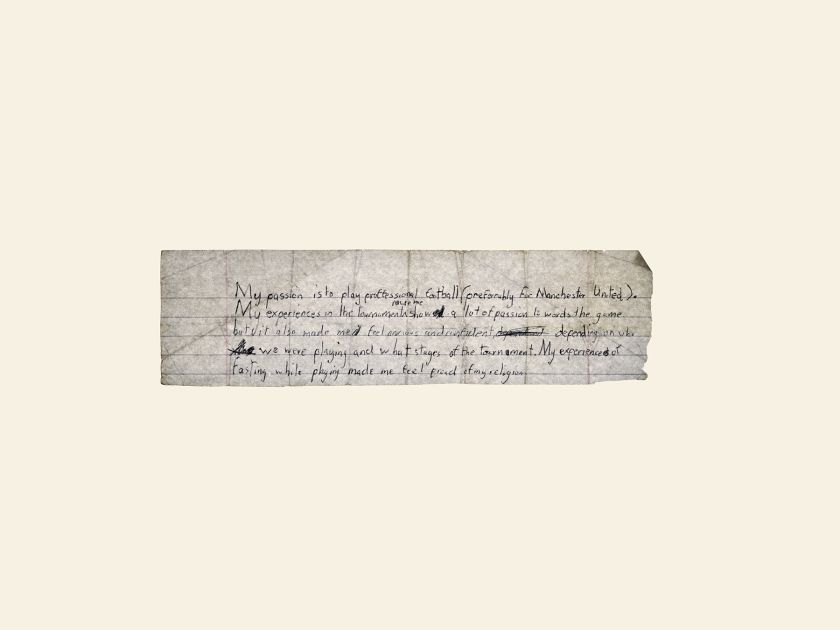 My passion is to play proffessional football (preferrably for Manchester United).
My experiences in the tournaments showed a lot of passion towards the game
but it also made me feel anxious and confident depending on who
we were playing and what stages of the tournament. My experiences of
fasting while playing made me feel proud of my religion